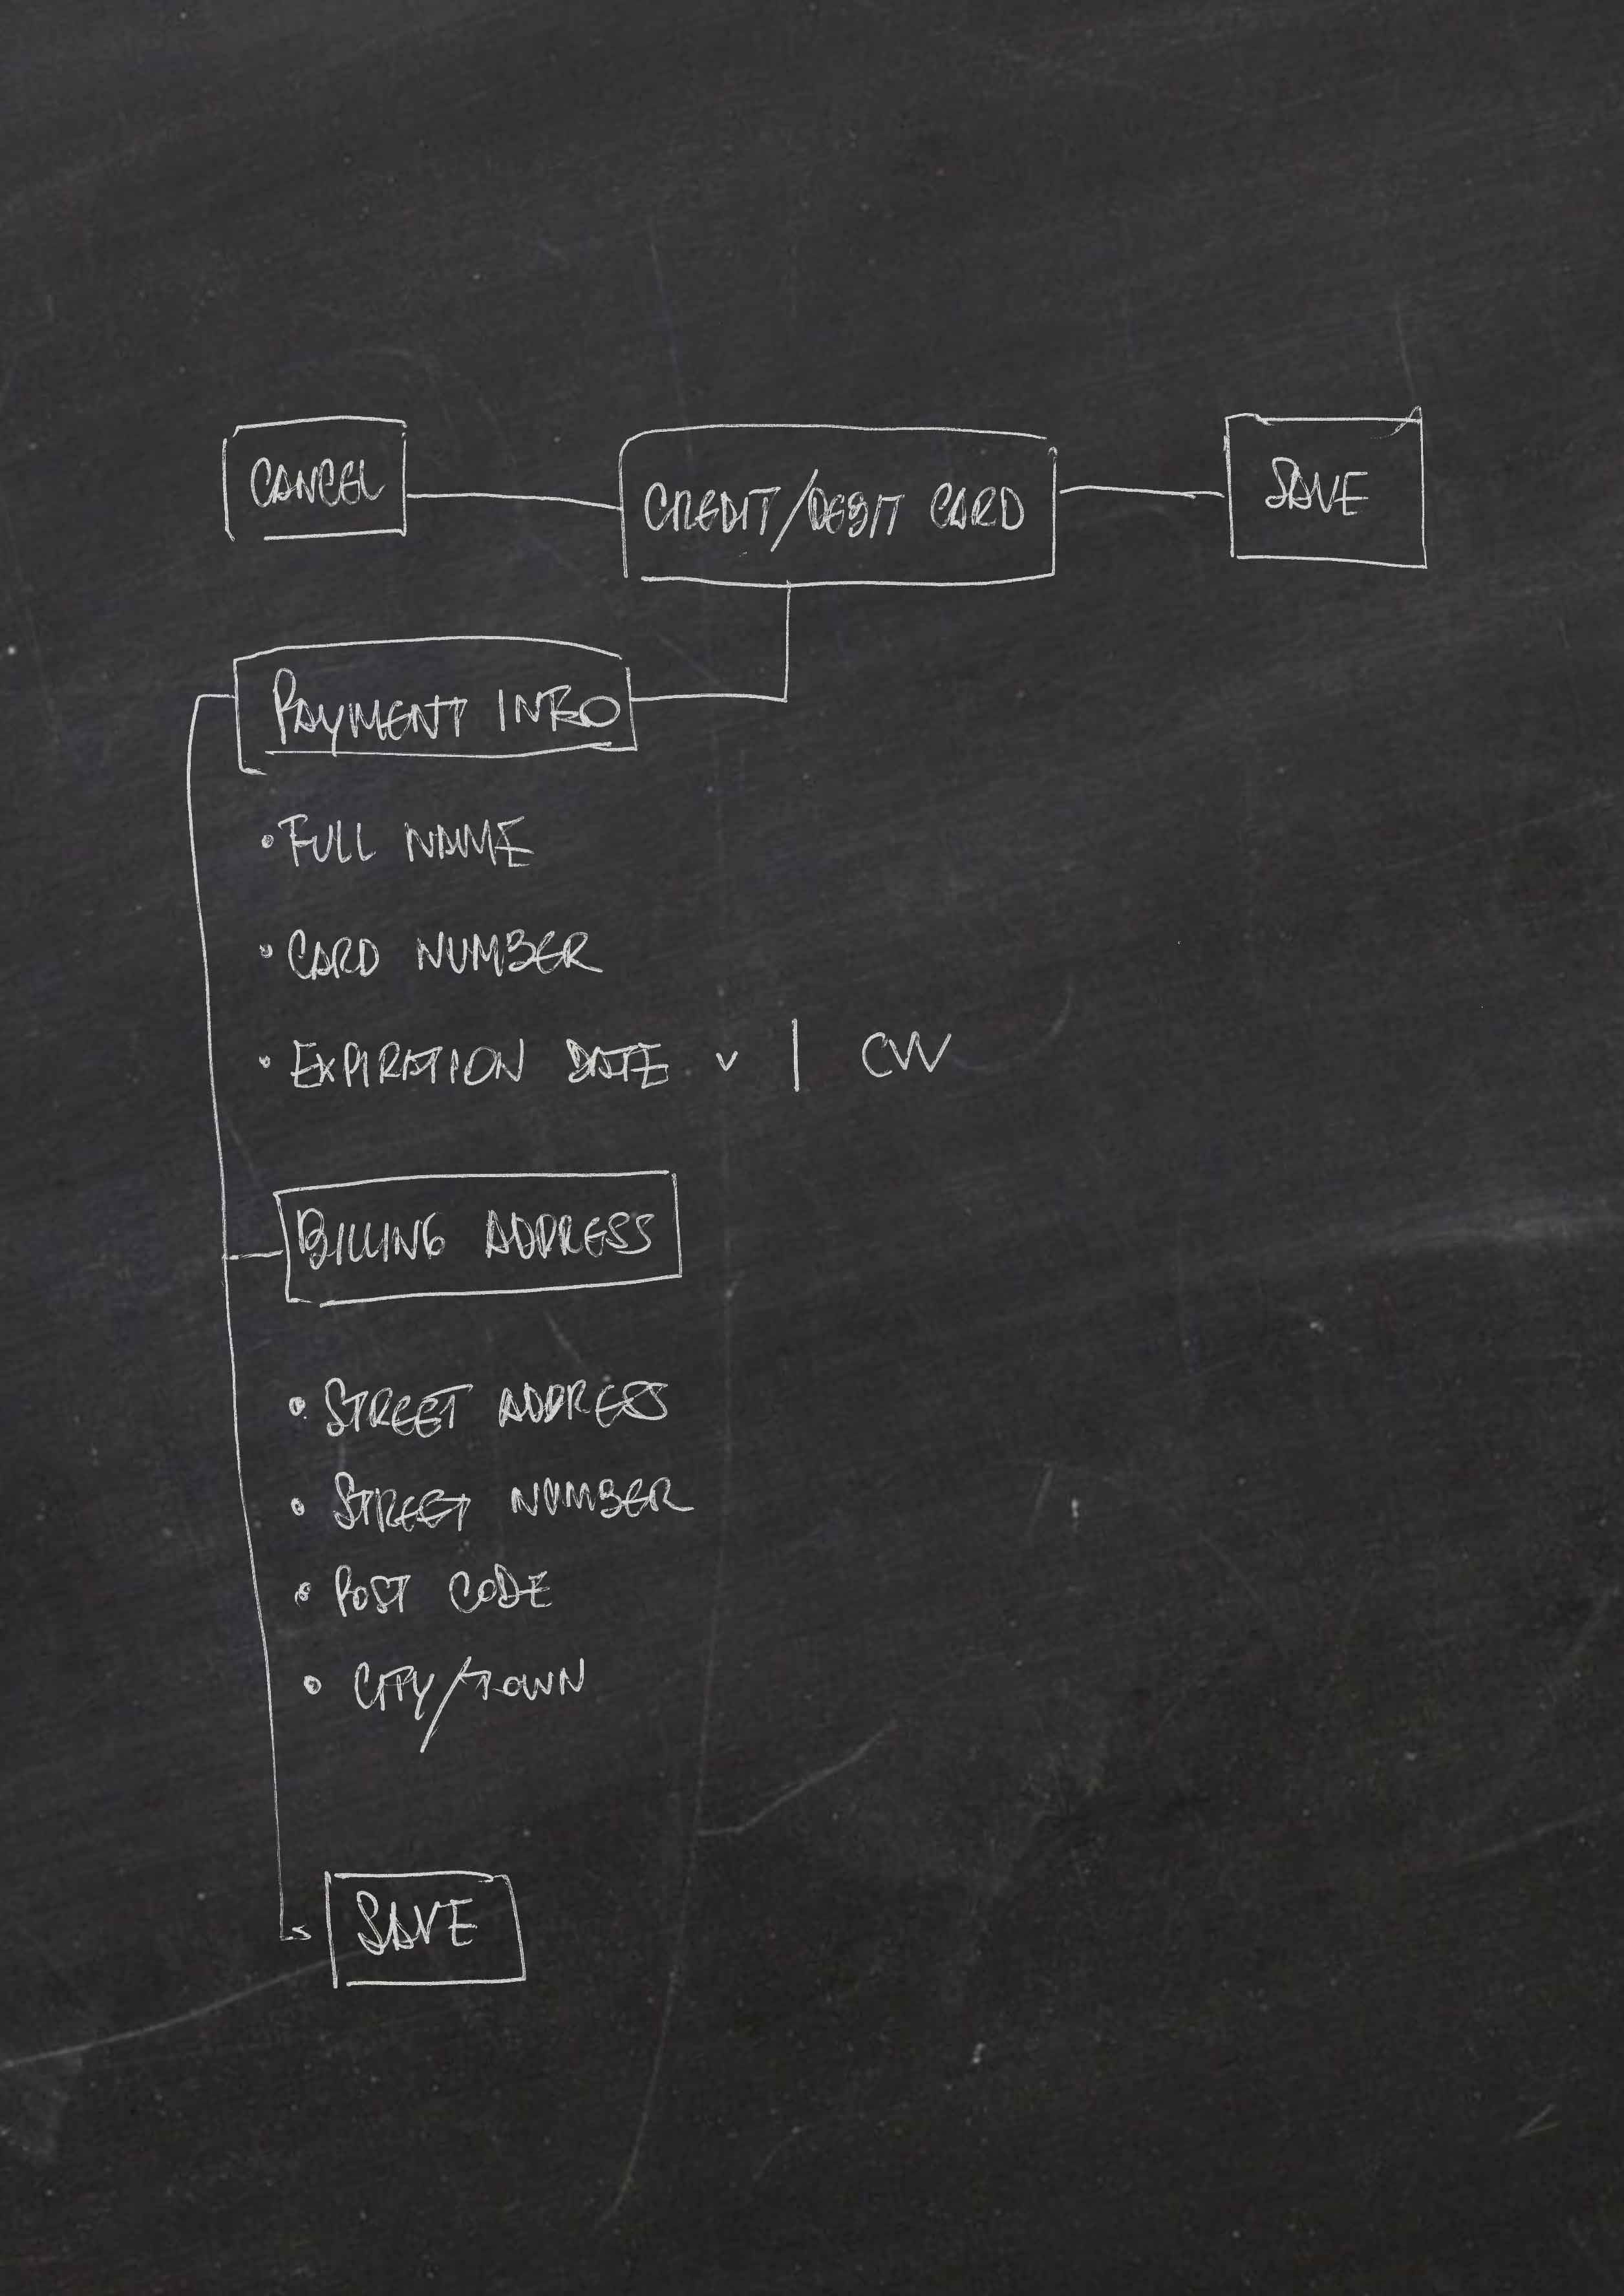 CANCEL
CREDIT/DEBIT CARD
SAVE
PAYMENT INFO
• FULL NAME
• CARD NUMBER
• EXPIRATION DATE v | CVV
BILLING ADDRESS
• STREET ADDRESS
• STREET NUMBER
• POST CODE
• CITY/TOWN
SAVE